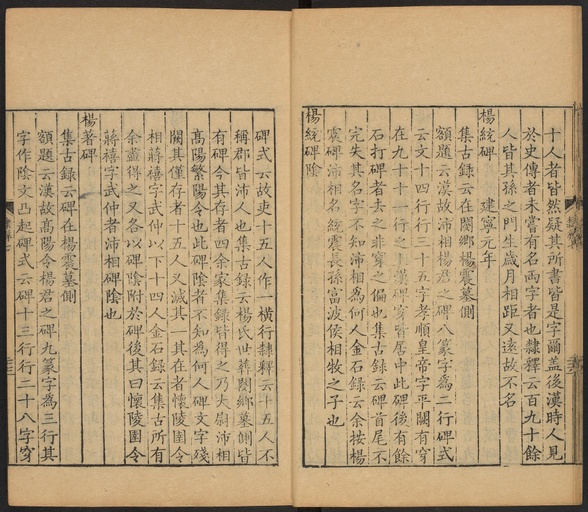 十人者皆然疑其所書皆是字爾蓋後漢時人見
於史傳者未嘗有名兩字者也隸釋云百九十餘
人皆其孫之門生歲月相距又遠故不名
楊統碑 建寧元年
集古錄云在閿鄉楊震墓側
額題云漢故沛相楊君之碑八篆字為二行碑式
云文十四行行三十五字孝順皇帝字平闕有穿
在九十十一行之其漢碑穿皆居中此碑後有餘
石打碑者去之非穿之偏也集古錄云碑首尾不
完失其名字不知沛相為何人金石錄云余按楊
震碑沛相名統震長孫富波侯相牧之子也
楊統碑陰
碑式云故吏十五人作一橫行隸釋云十五人不
稱郡皆沛人也集古錄云楊氏世葬閿鄉墓側皆
有碑今其存者四余家集錄皆得之乃大尉沛相
高陽繁陽令也此碑陰者不知為何人碑文字殘
闕其僅存者十五人又滅其一其在者懷陵圉令
相蔣禧字武仲以下十四人金石錄云集古所有
余盡得之又各以碑陰附於碑後其曰懷陵圉令
蔣禧字武仲者沛相碑陰也
楊著碑
集古錄云碑在楊震墓側
額題云漢故高陽令楊君之碑九篆字為三行其
字作陰文凸起碑式云碑十三行行二十八字穿